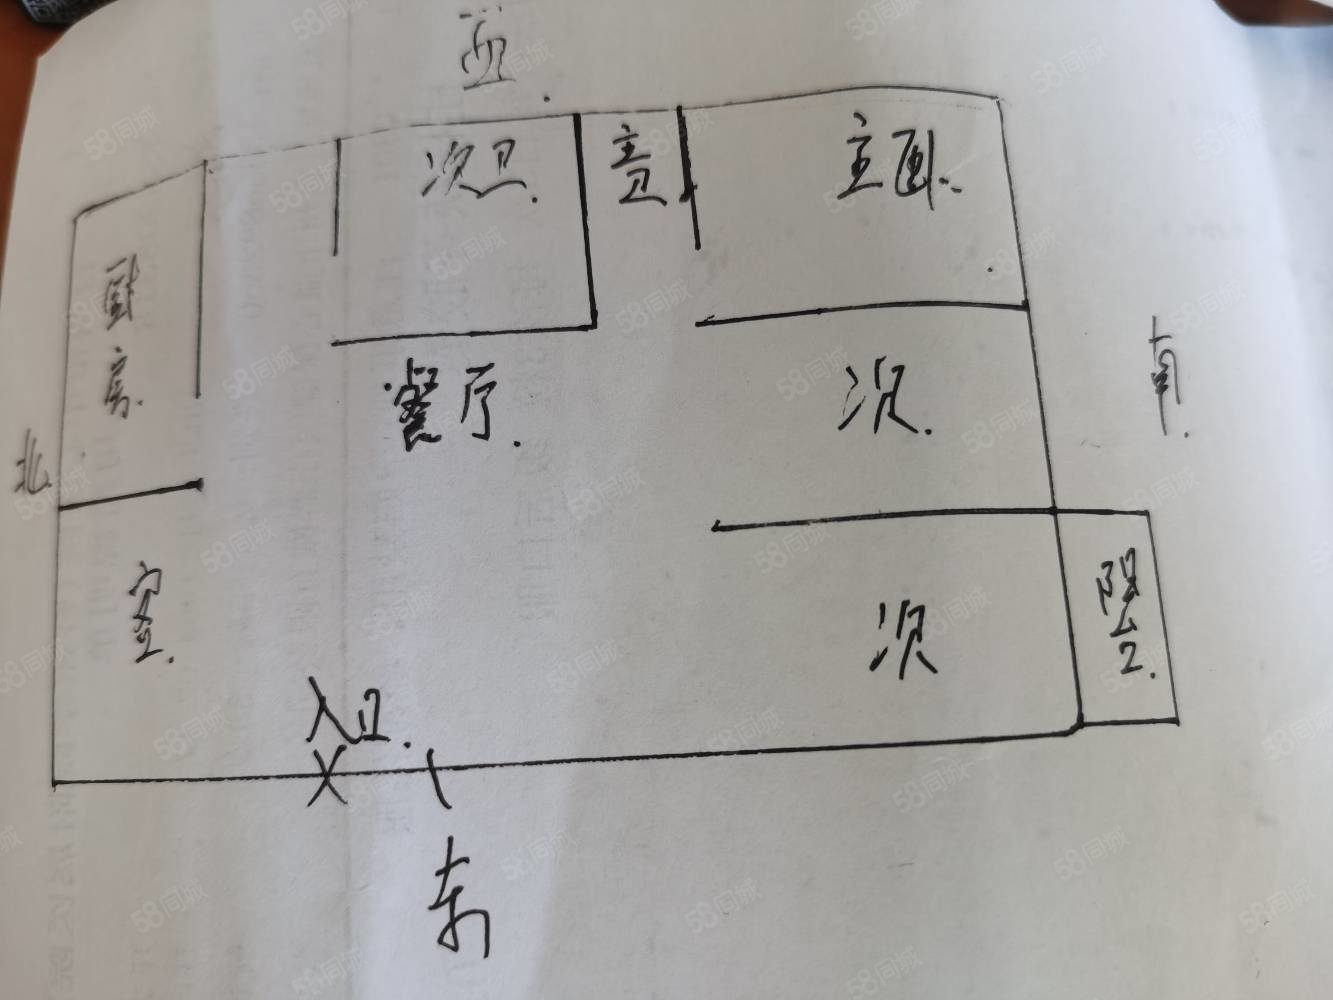 西.
次卫.
主卫.
主卧.
厨房.
餐厅.
次.
南.
北.
室.
次
阳台.
入口.
东
58同城